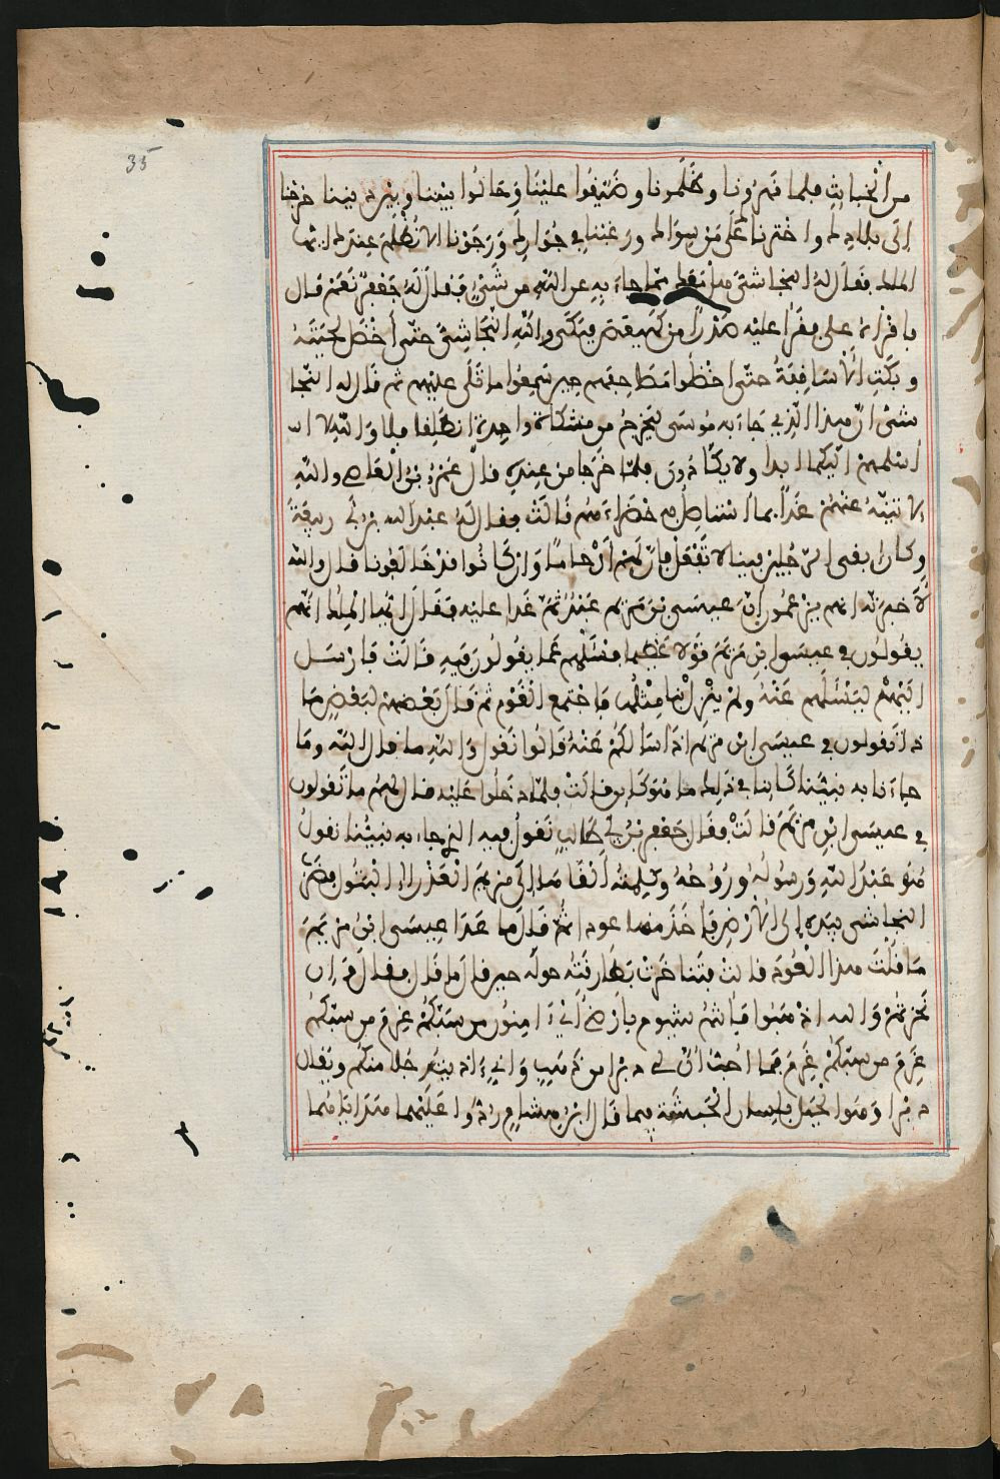 35
من الخبائث فلما قهرونا وظلمونا وضيقوا علينا وحالوا بيننا وبين ديننا خرجنا
إلى بلادك واخترناك على من سواك ورغبنا في جوارك ورجونا الا نظلم عندك ايها
الملك فقال له النجاشى هل معك مما جاء به عن الله من شىء فقال له جعفر نعم قال
فاقراه على فقرا عليه صدرا من كهيعص فبكى والله النجاشى حتى أخضل لحيته
وبكت الأساقفة حتى اخضلوا مصاحفهم حين سمعوا ما تلى عليهم ثم قال له النجا
شى ان هذا الذي جاء به موسى ليخرج من مشكاة واحدة انطلقا فلا والله لا
اسلمهم اليكما ابدا ولا يكادون فلما خرجا من عنده قال عمرو بن العاص والله
لاتينه عنهم غدا بما استاصل به خضراءهم قالت فقال له عبد الله بن أبي ربيعة
وكان أبقى الرجلين فينا لا تفعل فإن لهم أرحاما وإن كانوا قد خالفونا قال والله
لأخبرنه انهم يزعمون أن عيسى بن مريم عبد ثم غدا عليه فقال ايها الملك انهم
يقولون في عيسى ابن مريم قولا عظيما فسلهم عما يقولون فيه قالت فارسل
اليهم ليسئلهم عنه ولم ينزل بنا مثلها فاجتمع القوم ثم قال بعضهم لبعض ما
ذا تقولون في عيسى ابن مريم اذا سالكم عنه قالوا نقول والله ما قال الله وما
جاءنا به نبينا كائنا في ذلك ما هو كائن قالت فلما دخلوا عليه قال لهم ما تقولون
في عيسى ابن مريم قالت فقال جعفر بن أبي طالب نقول فيه الذي جاء به نبينا نقول
هو عبد الله ورسوله وروحه وكلمته ألقاها إلى مريم العذراء البتول فضرب
النجاشى بيده إلى الأرض فاخذ منها عودا ثم قال ما عدا عيسى ابن مريم
ما قلت هذا العود قالت فتناخرت بطارقته حوله حين قال ما قال فقال وان
نخرتم والله اذهبوا فانتم شيوم بأرضي آمنون من سبكم غرم من سبكم
غرم من سبكم غرم فما احب ان لي دبرا من ذهب واني ءاذيت رجلا منكم ويقال
دبرا وهو الجبل بلسان الحبشة فيما قال ابن هشام ردوا عليهما هداياهما